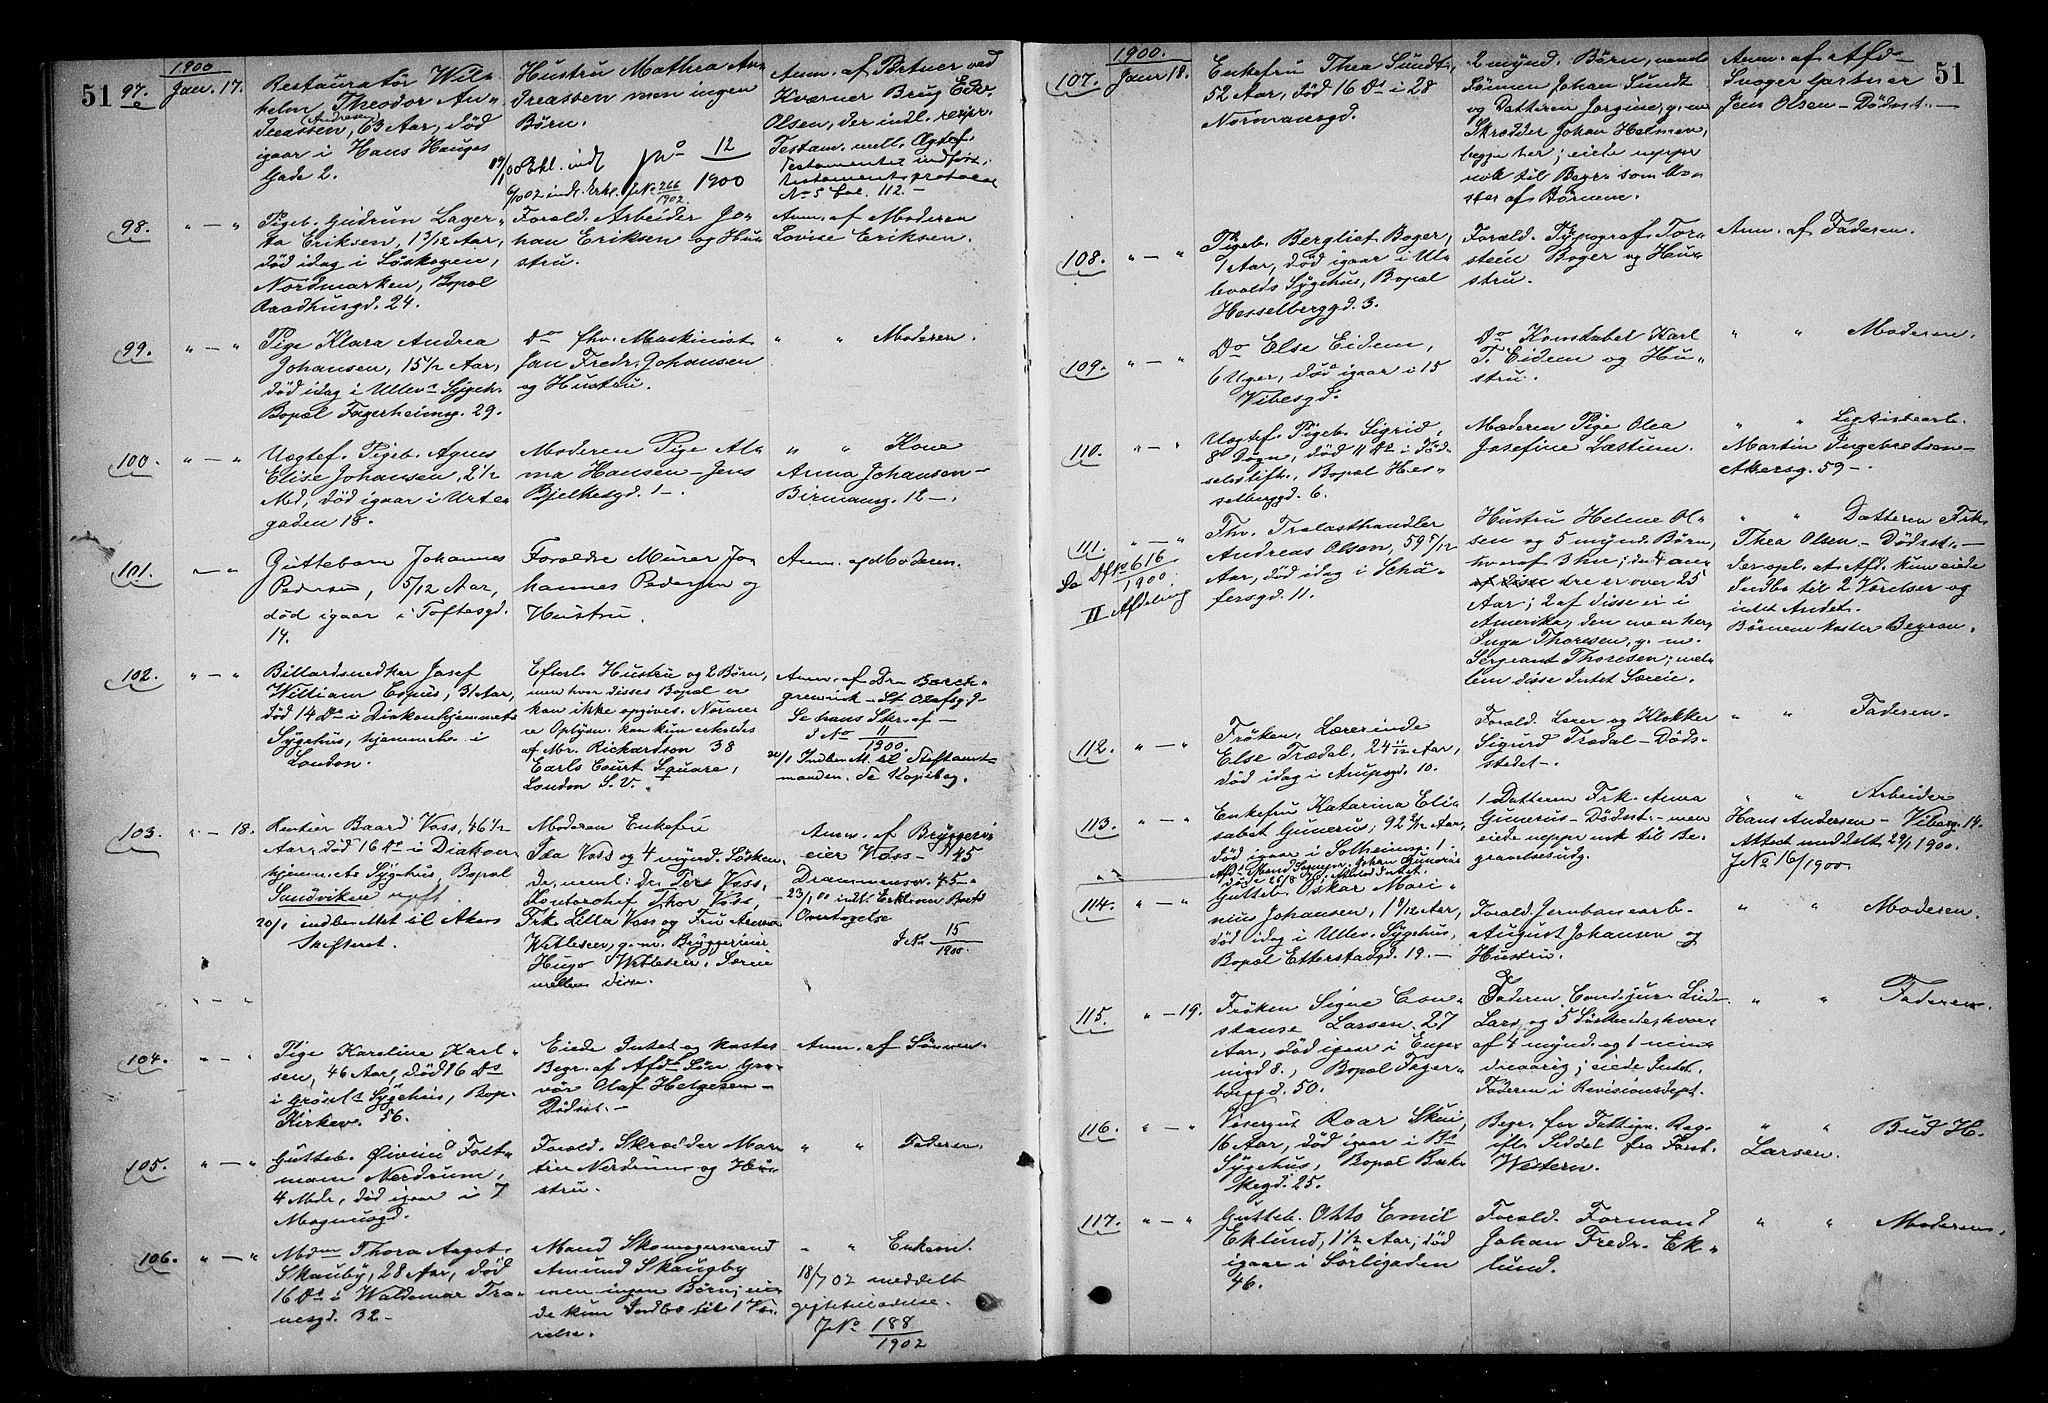 51
1900
97.
Jan. 17.
Restauratør Wil-
helm Theodor An-
(Andresen)
dreassen, 63 Aar, død
igaar i Hans Hauges
Gade 2.
Hustru Mathea An-
dreassen men ingen
Børn.
JNo 12
1900
6/10 02 indk. Erkl. JNo 266
1902.
Anm. af Portner ved
Kværner Brug Edv.
Olsen, der indl. recipr.
Testam. mell. Ægtef.
Testamentet indført i
testamentsprotocol
No 5 fol. 112 –
98.
" — "
Pigeb. Gudrun Lager-
ta Eriksen, 1 3/12 Aar,
død idag i Løskogen,
Nordmarken, Bopæl
Raadhusgd. 24.
Foræld. Arbeider Jo-
han Eriksen og Hu-
stru.
Anm. af Moderen
Lovise Eriksen.
99.
" — "
Pige Klara Andrea
Johansen, 15 1/2 Aar,
død idag i Ullev. Sygeh.
Bopæl Fagerheimsg. 29.
Do fhv. Maskinist
Jan Fredr. Johansen
og Hustru.
" " Moderen.
100.
" — "
Uægtef. Pigeb. Agnes
Elise Johansen, 2 1/2
Md, død igaar i Urte-
gaden 18.
Moderen Pige Al-
ma Hansen – Jens
Bjelkesgd. 1 –.
" " Kone
Anna Johansen –
Birmansg. 12 –.
101.
— "
Guttebarn Johannes
Pedersen, 5/12 Aar,
død igaar i Toftesgd.
14.
Forældre Murer Jo-
hannes Pedersen og
Hustru.
Anm. af Moderen.
102.
" — "
Billardsnedker Josef
William Espius, 31 Aar,
død 14 Ds i Diakonhjemmets
Sygehus, hjemmeh. i
London.
Efterl. Hustru og 2 Børn,
men hvor disses Bopæl er
kan ikke opgives. Nærme-
re Oplysn. kan kun erholdes
af Mr. Richardson 38
Earls Court Square,
London S. V.
Anm. af Dra Borch-
grevink – St Olafsgd –
Se hans Skr. af –
JNo 11
1900.
20/1 Indber. M. til Stiftamt-
manden. Se Kopibog.
103.
" — 18.
Rentier Baard Voss, 46 1/2
Aar, død 16 Ds i Diakon-
hjemmets Sygehus, Bopæl
Sandviken ugift.
20/1 indber. Met til Akers
Skifteret.
Moderen Enkefru
Ida Voss og 4 mynd. Søsken-
de, neml: Dr. Per Voss,
Kontorchef Thor Voss,
Frk. Lilla Voss og Fru Anna
Witlesen, g. m. Bryggerieier
Hugo Witlesen. Særeie
mellem disse.
Anm. af Bryggeri-
eier Voss –
Drammensv. 45 –
23/1 00 indk. Erklæring Boets
Overtagelse
JNo 15
1900
" — "
104.
" — "
Pige Karoline Karl-
sen, 46 Aar, død 16 Ds
i Grøsels Sygehus, Bop.
Kirkev. 56.
Eiede Intet og kostes
Begr. af Afds Søn Gra-
vør Olaf Helgesen –
Dødsst. –
Anm. af Sønnen.
105.
" — "
Gutteb. Øivind Folk-
mann Nerdrum,
4 Mdr, død igaar i 7
Magnusgd.
Foræld. Skrædder Mar-
tin Nerdrum og Hu-
stru.
" " Faderen.
106.
" — "
Mdm Thora Aagot
Skauby, 28 Aar, død
16 Ds i Waldemar Tra-
nesgd. 32 –
Mand Skomagersvend
Amund Skaugby
men ingen Børn; eie-
de kun Indbo til 1 Væ-
relse.
" " Enkem.
18/7 02 meddelt
giftetilladelse.
JNo 188
1902
51
1900.
107.
Janr 18.
Enkefru Thea Sundt,
52 Aar, død 16 Ds i 28
Normansgd.
2 mynd. Børn, neml.
Sønnen Johan Sundt
og Datteren Jorgine, g. m.
Skrædder Johan Helmen,
begge her; eiede neppe
nok til Begr. som ko-
stes af Børnene.
Anm. af Afds
Svoger Gartner
Jens Olsen – Dødsst. –
108.
" — "
Pigeb. Bergliot Boger,
1 Aar, død igaar i Ul-
levolds Sygehus, Bopæl
Hesselberggd. 3.
Foræld. Typograf Tor-
stein Boger og Hu-
stru.
Anm. af Faderen.
109.
" — "
Do Else Eidem,
6 Uger, død igaar i 15
Vibesgd.
Do Konstabel Karl
T. Eidem og Hu-
stru.
" " Moderen.
110.
" — "
Uægtef. Pigeb. Sigrid,
8 Døgn, død 11 Ds i Fød-
selsstift., Bopæl Hes-
selberggd. 6.
Moderen Pige Olea
Josefine Læstum.
" " Ligkistearb.
Martin Ingebretsen –
Akersg. 59 –.
111.
" — "
Se JNo 616
1900.
II Afdeling
Fhv. Trælasthandler
Andreas Olsen, 59 5/12
Aar, død idag i Schä-
fersgd. 11.
Hustru Helene Ol-
sen og 5 mynd. Børn,
hvoraf 3 hu; de 4 an-
dre er over 25
Aar; 2 af disse er i
Amerika, den ene er her,
Inga Thoresen, g. m.
Sergeant Thoresen; mel-
lem disse Intet Særeie.
" " Datteren Frk.
Thea Olsen – Dødsst. –
der opl. at Afd. kun eiede
Indbo til 2 Værelser og
intet Andet.
Børnene koster Begravn.
112.
" — "
Frøken, Lærerinde
Else Trædal, 24 11/12 Aar,
død idag i Arupsgd. 10.
Foræld. Lærer og Klokker
Sigurd Trædal – Døds-
stedet –.
" " Faderen.
113.
" — "
Enkefru Katarina Eli-
sabet Gunerus, 92 2/12 Aar,
død igaar i Solheimsg. 1.
1 Datteren Frk. Anna
Gunerus – Dødsst. – men
eiede neppe nok til Be-
gravelsesudg.
" " Arbeider
Hans Andersen – Vibesg. 14.
Attest meddelt 29/1 1900.
JNo 16/1900.
114.
" — "
Gutteb. Oskar Mari-
nius Johansen, 1 9/12 Aar,
død idag i Ullev. Sygehus,
Bopæl Etterstadgd. 19. –
Foræld. Jernbanearb.
August Johansen og
Hustru.
" " Moderen.
115.
" — 19.
Frøken Signe Con-
stanse Larsen, 27
Aar, død igaar i Enge-
nigd 8., Bopæl Fager-
borggd. 50.
Faderen Cand. jur. Lude
Lars. og 5 Søskende, hvor-
af 4 mynd. og 1 min-
dreaarig; eiede Intet.
Faderen i Revisionsdept.
" " Faderen.
116.
" — "
Visergut Roar Skui,
16 Aar, død igaar i Bs
Sygehus, Bopæl Bak-
kegd. 25.
Begr. for Fattigv. Reg-
ifte Seddel fra Forst.
Western.
" " Bud H.
Larsen.
117.
" — "
Gutteb. Otto Emil
Eklund, 1 1/2 Aar, død
igaar i Sørligaden
46.
Foræld. Formand
Johan Fredr. Ek-
lund.
" " Moderen.